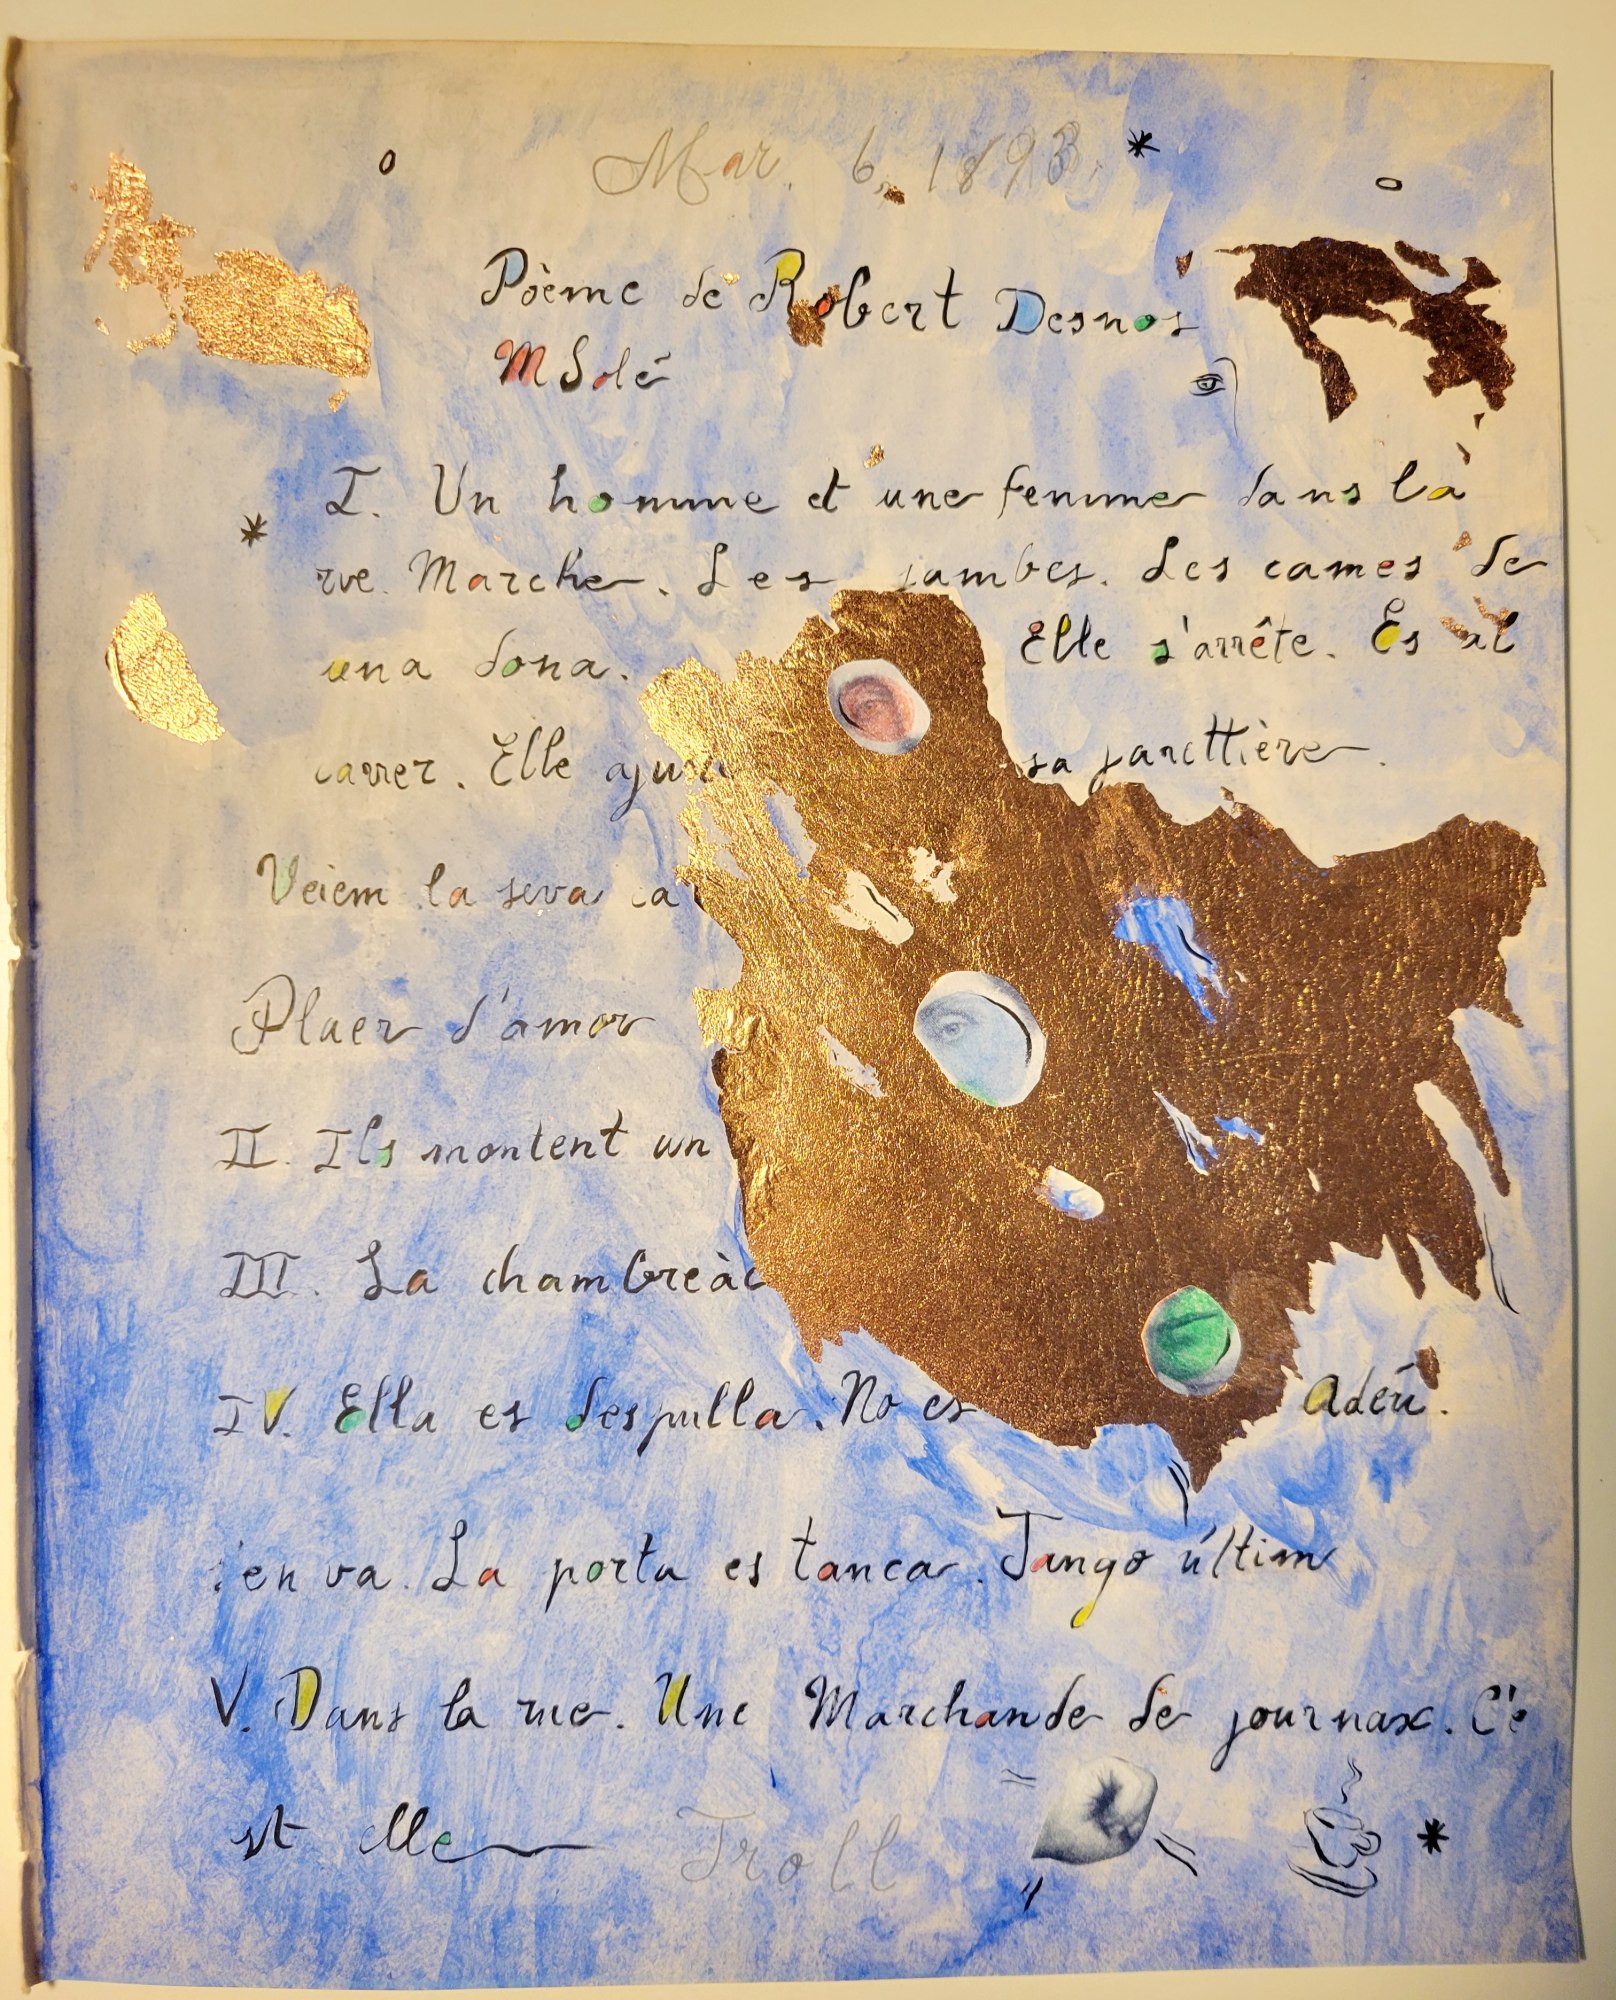 Mar. 6, 1893.
Poème de Robert Desnos
M Solé
I. Un homme et une femme dans la
rue. Marche. Les jambes. Les cames de
una dona. Elle s'arrête. És al
carrer. Elle ajus sa jarettière.
Veiem la seva ca
Plaer d'amor
II. Ils montent un
III. La chambre àc
IV. Ella es despulla. No es Adéu.
s'en va. La porta es tanca. Tango últim
V. Dans la rue. Une Marchande de journax. C'e
st elle
Troll